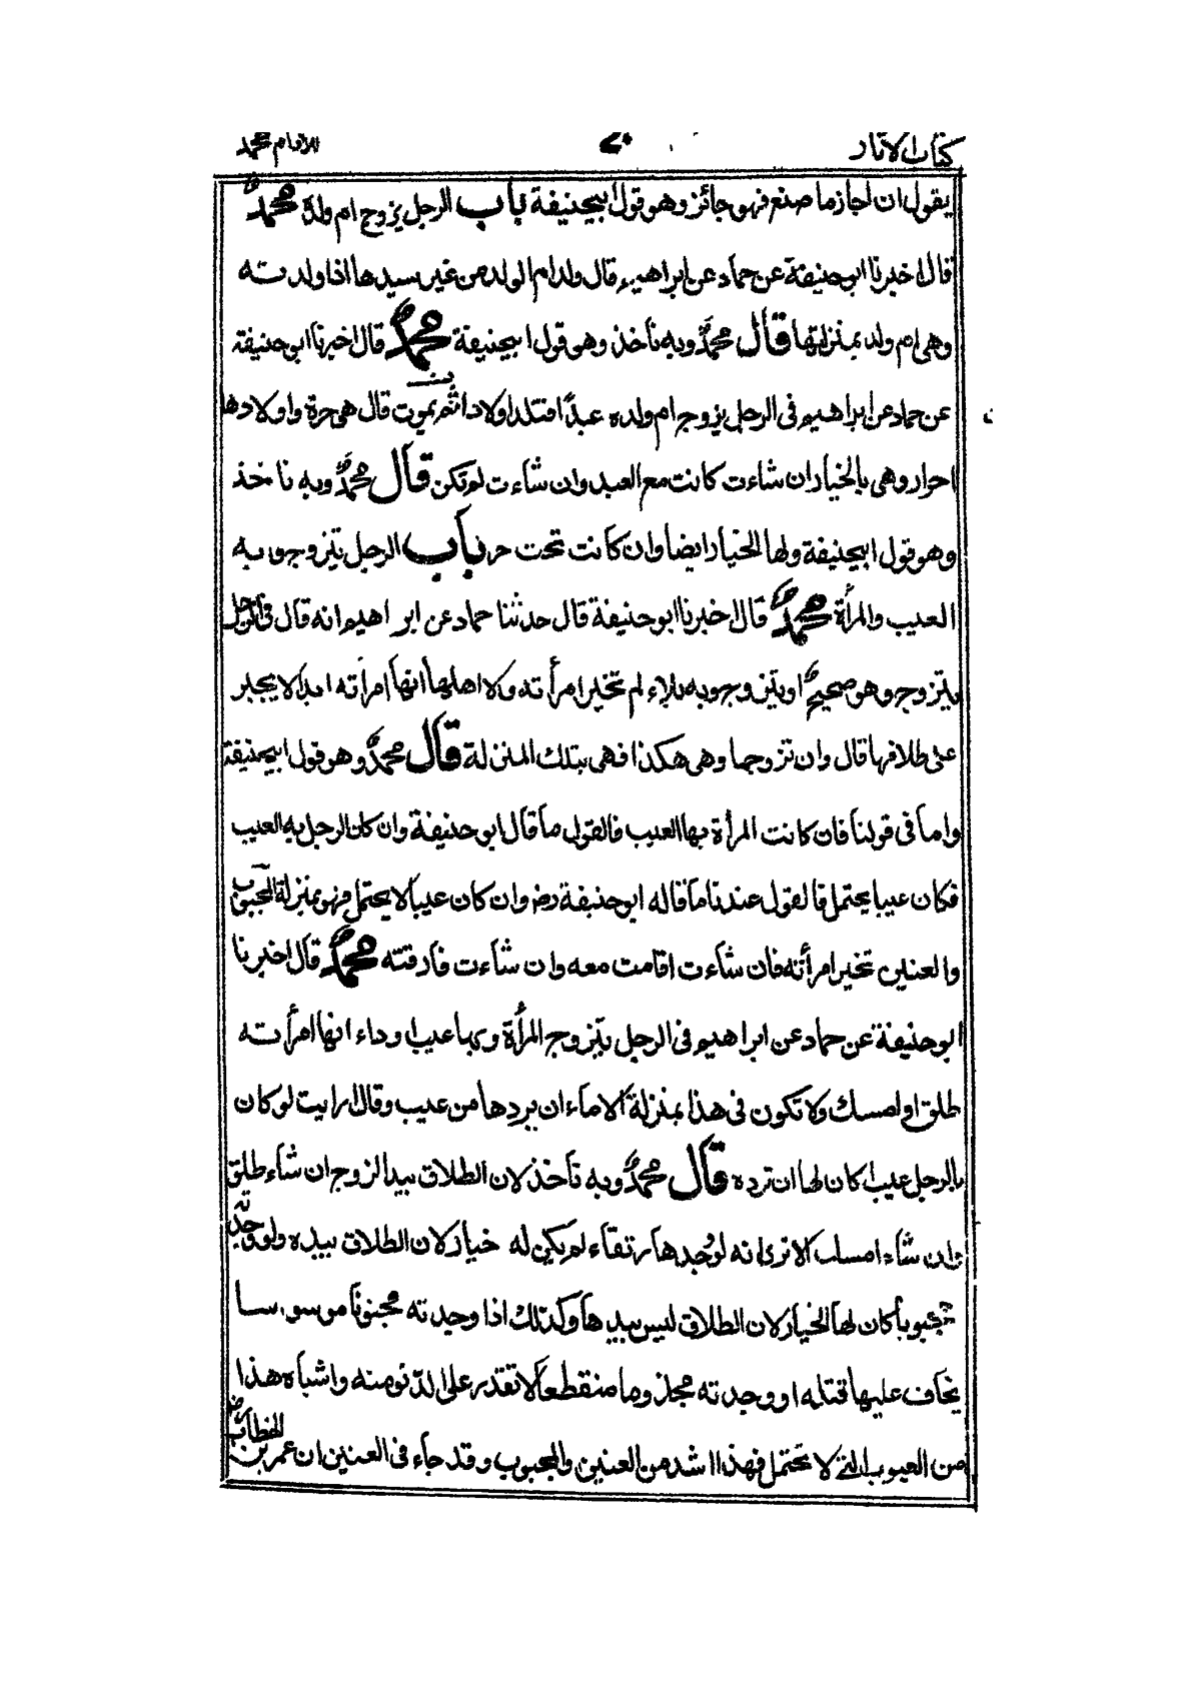 كتاب الاثار للامام محمد
يقول ان اجاز ما صنع فهو جائز وهو قول ابيحنيفة باب الرجل يزوج ام ولده محمد
قال اخبرنا ابو حنيفة عن حماد عن ابراهيم قال ولد ام الولد من غير سيدها اذا ولدته
وهي ام ولد بمنزلتها قال محمد وبه نأخذ وهو قول ابيحنيفة محمد قال اخبرنا ابو حنيفة
عن حماد عن ابراهيم في الرجل يزوج ام ولده عبدا فتلد اولادا ثم يموت قال هي حرة واولادها
احرار وهي بالخيار ان شاءت كانت مع العبد وان شاءت لم تكن قال محمد وبه ناخذ
وهو قول ابيحنيفة ولها الخيار ايضا وان كانت تحت حر باب الرجل يتزوج وبه
العيب والمرأة محمد قال اخبرنا ابو حنيفة قال حدثنا حماد عن ابراهيم انه قال في الرجل
يتزوج وهو صحيح او يتزوج وبه بلاء لم تخير امرأته ولا اهلها انها امرأته ابدا لا يجبر
على طلاقها قال وان تزوجها وهي هكذا فهي بتلك المنزلة قال محمد وهو قول ابيحنيفة
واما في قولنا فان كانت المرأة بها العيب فالقول ما قال ابو حنيفة وان كان الرجل به العيب
فكان عيبا يحتمل فالقول عندنا ما قاله ابو حنيفة رض وان كان عيبا لا يحتمل فهو بمنزلة المجبوب
والعنين تخير امرأته فان شاءت اقامت معه وان شاءت فارقته محمد قال اخبرنا
ابو حنيفة عن حماد عن ابراهيم في الرجل يتزوج المرأة وبها عيب او داء انها امرأته
طلق او امسك ولا تكون في هذا بمنزلة الاماء ان يردها من عيب وقال ارايت لو كان
بالرجل عيب اكان لها ان ترده قال محمد وبه نأخذ لان الطلاق بيد الزوج ان شاء طلق
وان شاء امسك الا ترى انه لو وجدها رتقاء لم يكن له خيار لان الطلاق بيده ولو وجدته
مجبوبا كان لها الخيار لان الطلاق ليس بيدها وكذلك اذا وجدته مجنونا موسوسا
يخاف عليها قتله او وجدته مجذوما منقطعا لا تقدر على الدنو منه واشباه هذا
من العيوب التي لا تحتمل فهذا اشد من العنين والمجبوب وقد جاء في العنين ان عمر بن الخطاب رض